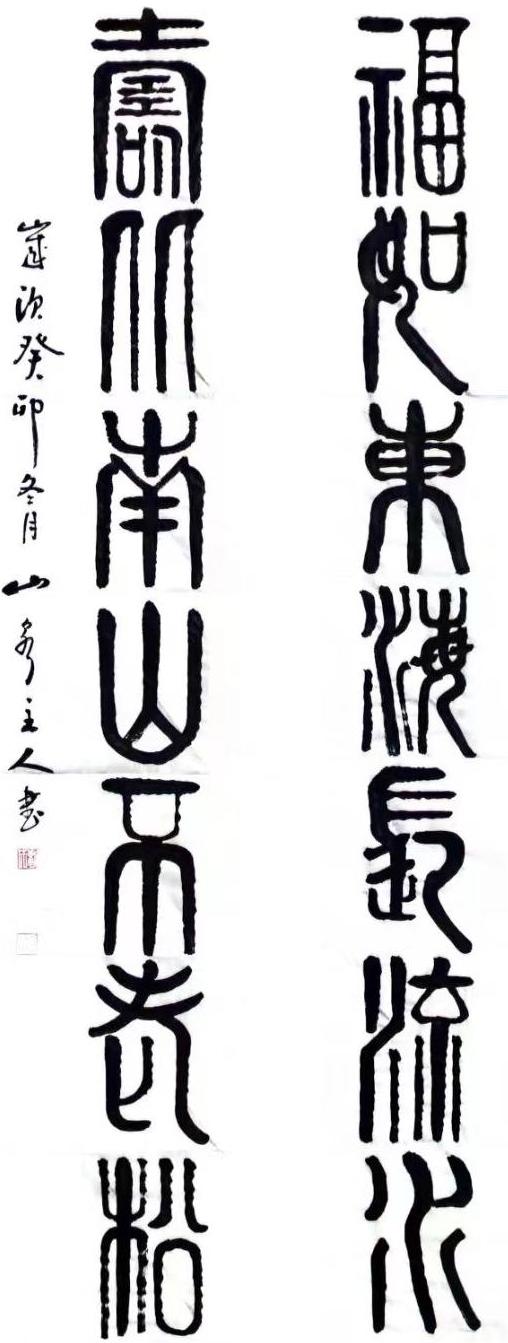 福如東海長流水
壽比南山不老松
歲次癸卯冬月山泉主人書